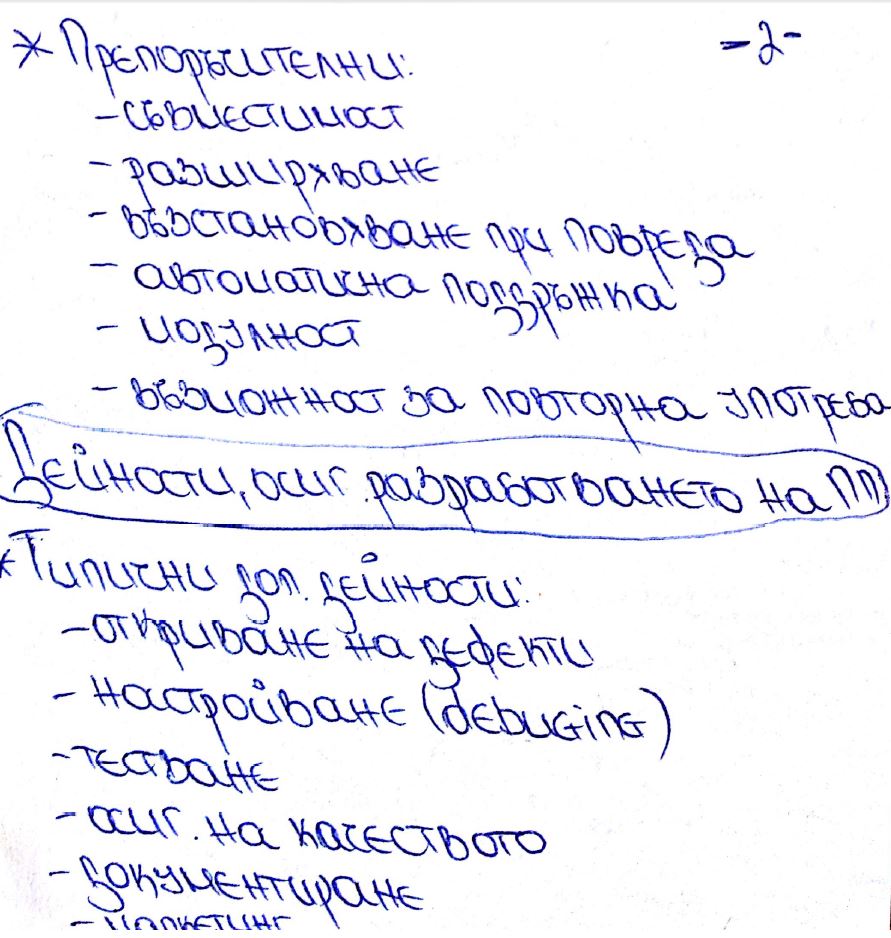 * Препоръчителни: -2-
- съвместимост
- разширяване
- възстановяване при повреда
- автоматична поддръжка
- модулност
- възможност за повторна употреба
Дейности, осиг. разработването на ПП
* Типични доп. дейности:
- откриване на дефекти
- настройване (debuging)
- тестване
- осиг. на качеството
- документиране
- маркетинг